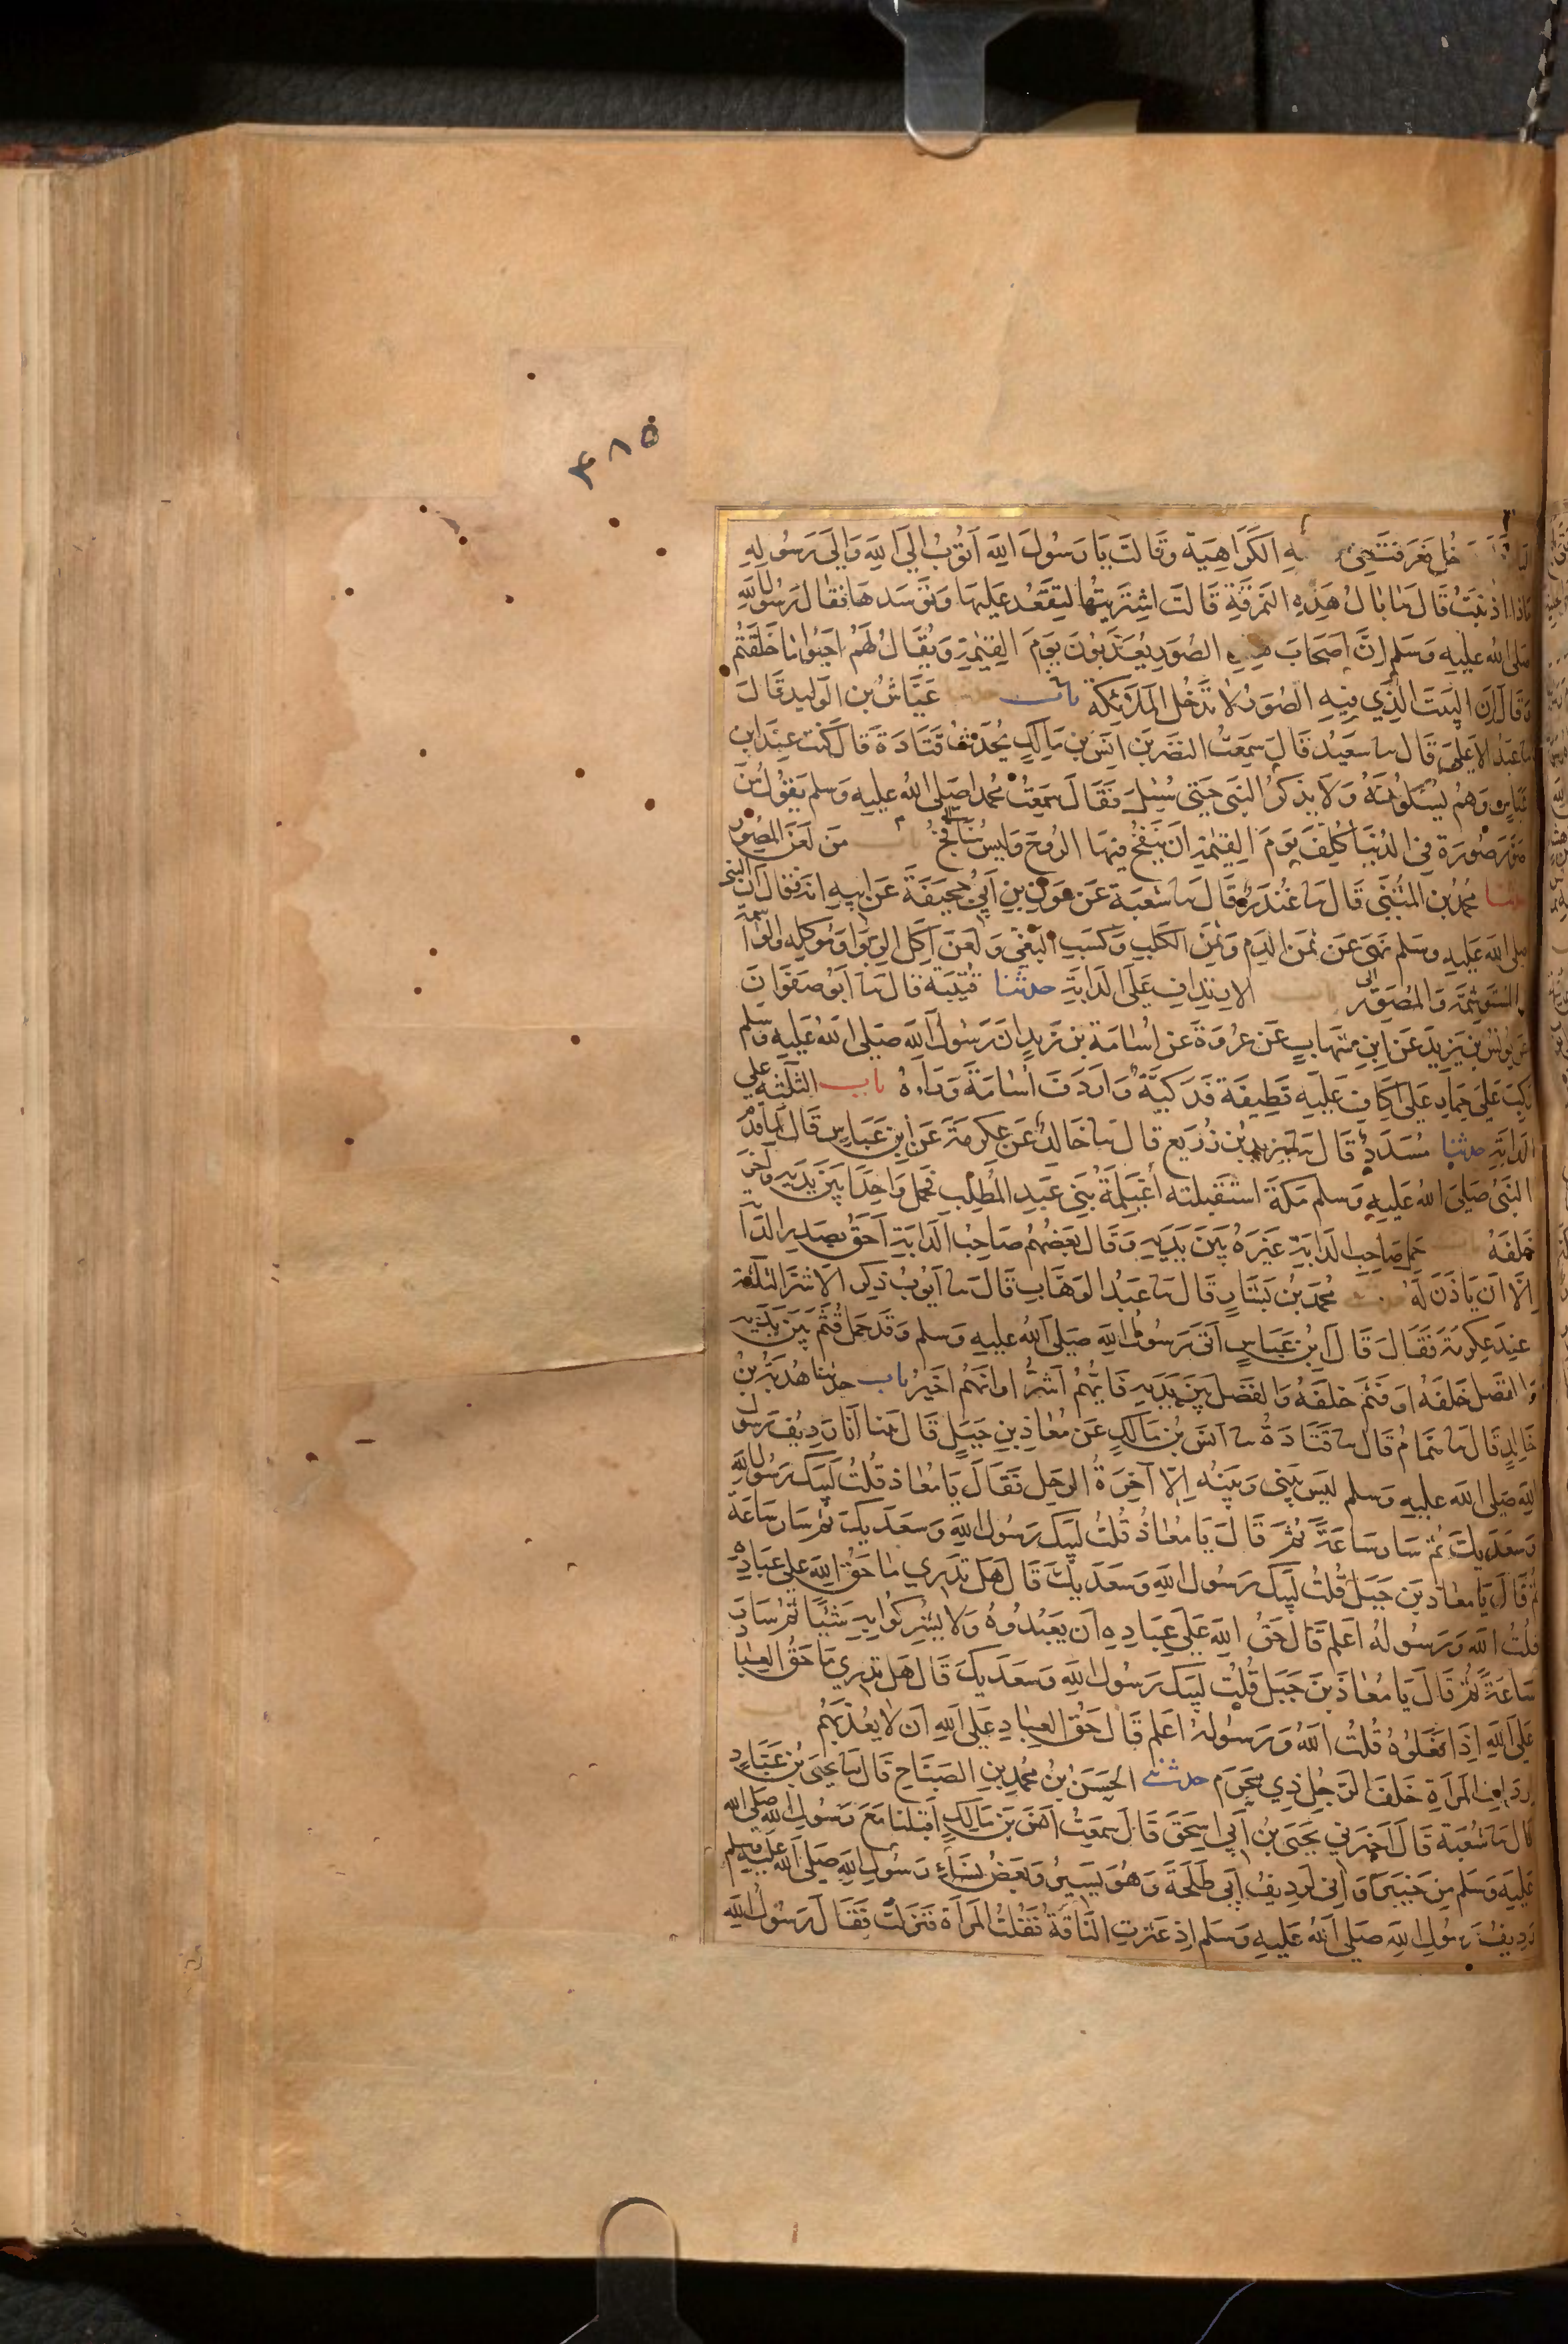 ٤٨٥
خل فعرفت في ـه الكَرَاهِيَة وَقَالَت يَا رَسُولَ اللهِ اَتُوبُ اِلَى اللهِ وَاِلَى رَسُولِهِ
مَاذا اذنبتُ قَالَ مَا بَالُ هَذِهِ النمرقَةِ قَالَت اشتَرَيتُها لِتَقعُدَ عَلَيهَا وَتَوَسَدهَا فَقَالَ رَسُولُ اللهِ
صَلى اللهُ عَلَيهِ وَسَلم اِنَّ اَصحَابَ هذِهِ الصُوَرِ يُعَذَّبُونَ يَومَ القِيٰمَةِ وَيُقَالُ لَهُم اَحيُوا مَا خَلَقتُم
وَقَالَ اِنَ البَيتَ الَّذِي فِيهِ الصُوَرُ لَا تَدخُل المَلٰئِكَة باب عَيَّاشُ بن الوَلِيد قَالَ
نا عَبدُ الاَعلَى قَالَ نا سَعِيدُ قَالَ سَمِعتُ النضرَ بنَ اَنَسِ بنِ مَالِكٍ يُحَدِّثُ قَتَادَةَ قَالَ كُنت عِندَ ابنِ
عَبَّاسٍ وَهُم يَسئَلُونَهُ وَلَا يَذكُرُ النَبي حَتى سُئِلَ فَقَالَ سَمِعتُ مُحمدا صَلى اللهُ عَلَيهِ وَسَلم يَقُولُ مَن
صَوَّرَ صُورَة فِي الدُنيَا كُلِّفَ يَومَ القِيٰمَةِ اَن يَنفُخَ فِيهَا الرُوحَ وَلَيسَ بِنَافِخ باب مَن لَعَنَ المُصَوِّر
حدثنا مُحمدُ بن المُثَنَّى قَالَ نا غُندَرٌ قَالَ نا شُعبَة عَن عَونِ بنِ اَبِي جُحَيفَةَ عَن اَبِيهِ انه فَقَالَ اِنَّ النبي
صلى الله عَلَيهِ وَسَلم نَهى عَن ثَمَنِ الدَمِ وَثَمَنِ الكَلبِ وَكَسبِ البَغيِ وَلَعَنَ آكِلَ الرِبَوا وَمُوكِلِه وَالوَاشِمَة
وَالمُستَوشِمَة وَالمُصَوِّر باب الارتِدَافِ عَلَى الدَابَةِ حدثنا قُتَيبَة قَالَ نا اَبُو صَفوَانَ
عَن يُونُسَ بنِ يَزِيدَ عَن ابنِ شِهَابٍ عَن عُروَةَ عَن اُسَامَةَ بن زَيدٍ اَنَ رَسُولَ اللهِ صَلى اللهُ عَلَيهِ وَسَلم
رَكِبَ عَلَى حِمَارٍ عَلَى اِكَافٍ عَلَيهِ قَطِيفَة فَدَكِيَّة وَاَردَفَ اُسَامَةَ وَرَاءَهُ باب الثَلٰثَة عَلى
الدَابَةِ حدثنا مُسَدَدٌ قَالَ نا يَزِيد بن زُرَيع قَالَ نا خَالِدُ عَن عِكرِمَةَ عَن ابنِ عَبَّاسٍ قَالَ لَمَا قَدِمَ
النَبي صَلى اللهُ عَلَيهِ وسلم مَكةَ استَقبَلته اُغَيلِمَةُ بَنِي عَبدِ المُطَلِب فَحَمَلَ وَاحِدًا بَينَ يَدَيهِ وَآخَرَ
خَلفَهُ باب حَمل صَاحِبِ الدَابَةِ غَيرَهُ بَينَ يَدَيهِ وَقَالَ بَعضُهُم صَاحِبُ الدَابَةِ اَحَقُ بِصَدرِ الدَابَةِ
اِلَّا اَن يَأذَنَ لَهُ مُحمدُ بن بَشَّارٍ قَالَ نا عَبدُ الوَهَّابِ قَالَ نا اَيُوبُ ذُكِرَ الاَشَرّ الثَلٰثَة
عِندَ عِكرِمَةَ فَقَالَ قَالَ ابنُ عَبَّاسٍ اَتَى رَسُولُ اللهِ صَلى اللهُ عَليهِ وَسلم وَقَد حَمَلَ قُثَمَ بَينَ يَدَيه
وَالفَضلَ خَلفَهُ اَو قُثَمَ خَلفَهُ وَالفَضلَ بَينَ يَدَيهِ فَاَيُّهُم اَشَرُّ اَو اَيُّهُم اَخيَرُ باب حدثنا هُدبَةُ بنُ
خَالِدٍ قَالَ نا هَمَامُ قَالَ نا قَتَادَةُ نا اَنَسُ بنُ مَالِكٍ عَن مُعَاذِ بنِ جَبَلٍ قَالَ بَينا اَنَا رَدِيفُ رَسُولِ
اللهِ صَلى اللهُ عليهِ وَسلم لَيسَ بَينِي وَبَينَهُ اِلّا آخِرَةُ الرَحلِ فَقَالَ يَا مُعَاذ قُلتُ لَبَّيكَ رَسُولَ اللهِ
وَسَعدَيكَ ثُمَّ سَارَ سَاعَةً ثُمَّ قَالَ يَا مُعَاذُ قُلتُ لَبَّيكَ رَسُولَ اللهِ وَسَعدَيكَ ثُمَّ سَارَ سَاعَةً
ثُمَّ قَالَ يَا مُعَاذ بن جَبَل قُلتُ لَبَّيكَ رَسُولَ اللهِ وَسَعدَيكَ قَالَ هَل تَدرِي مَا حَقُّ اللهِ عَلى عِبَادِهِ
قُلتُ اللهُ وَرَسُولُهُ اَعلَم قَالَ حَقُّ اللهِ عَلَى عِبَادِهِ اَن يَعبُدُوهُ وَلَا يُشرِكُوا بِهِ شَيئًا ثُمَّ سَارَ
سَاعَةً ثُمَّ قَالَ يَا مُعَاذَ بنَ جَبَل قُلتُ لَبَّيكَ رَسُولَ اللهِ وَسَعدَيكَ قَالَ هَل تَدرِي مَا حَقُ العِبَادِ
عَلَى اللهِ اِذَا فَعَلُوهُ قُلتُ اللهُ وَرَسُولُهُ اَعلَم قَالَ حَقُّ العِبَادِ عَلَى اللهِ اَن لَا يُعَذِّبَهُم
اِردَافِ المَرأَةِ خَلفَ الرَجُلِ ذِي مَحرَم حدثنا الحَسَنُ بنُ مُحمدِ بنِ الصَبَّاحِ قَالَ نا يَحيَى بنُ عَبَّادٍ
قَالَ نا شُعبَة قَالَ اَخبَرَنِي يَحيَى بنُ اَبِي اِسحَقَ قَالَ سَمِعتُ اَنَسَ بنَ مَالِكٍ اَقبَلنَا مَعَ رَسُولِ اللهِ صَلى الله
عَلَيهِ وَسَلم مِن خَيبَرَ وَاِنِي لَرَدِيفُ اَبِي طَلحَةَ وَهُوَ يَسِيرُ وَبَعضُ نِسَاءِ رَسُولِ اللهِ صَلى اللهُ عَلَيهِ وَسلم
رَدِيفُ رَسُولِ اللهِ صَلى اللهُ عَلَيهِ وَسَلم اِذ عَثَرَتِ النَاقَةُ فَقُلتُ المَرأَةَ فَنَزَلتُ فَقَالَ رَسُولُ اللهِ